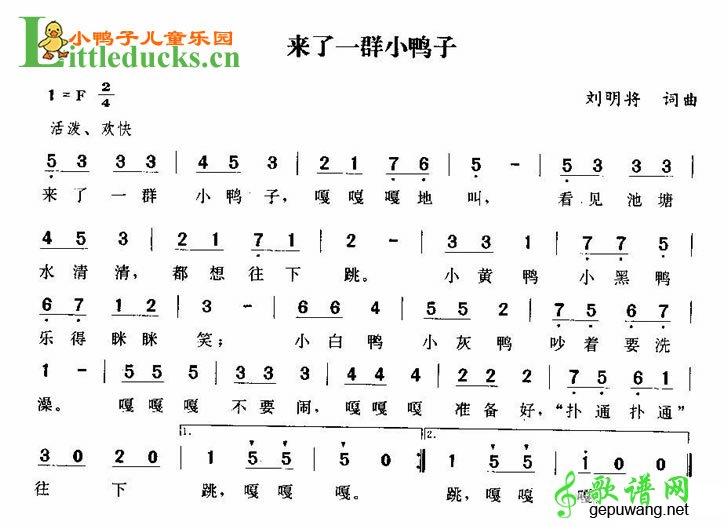 小鸭子儿童乐园
Littleducks.cn
来了一群小鸭子
1=F 2/4
刘明将 词曲
活泼、欢快
5 3 3 3 | 4 5 3 | 2 1 7 6 | 5 - | 5 3 3 3 |
来了一群 小鸭子, 嘎嘎嘎地 叫, 看见池塘
4 5 3 | 2 1 7 1 | 2 - | 3 3 1 | 7 7 5 |
水清清, 都想往下 跳。 小黄鸭 小黑鸭
6 7 1 2 | 3 - | 6 6 4 | 5 5 2 | 7 5 6 7 |
乐得眯眯 笑; 小白鸭 小灰鸭 吵着要洗
1 - | 5 5 5 | 3 3 3 | 4 4 4 | 7 5 6 1 |
澡。 嘎嘎嘎 不要闹, 嘎嘎嘎 准备好, “扑通扑通”
3 0 2 0 | 1. 1 5 5 | 5 0 :| 2. 1 5 5 | 1 0 0 ‖
往 下 跳, 嘎嘎 嘎。 跳, 嘎嘎 嘎
歌谱网
gepuwang.net